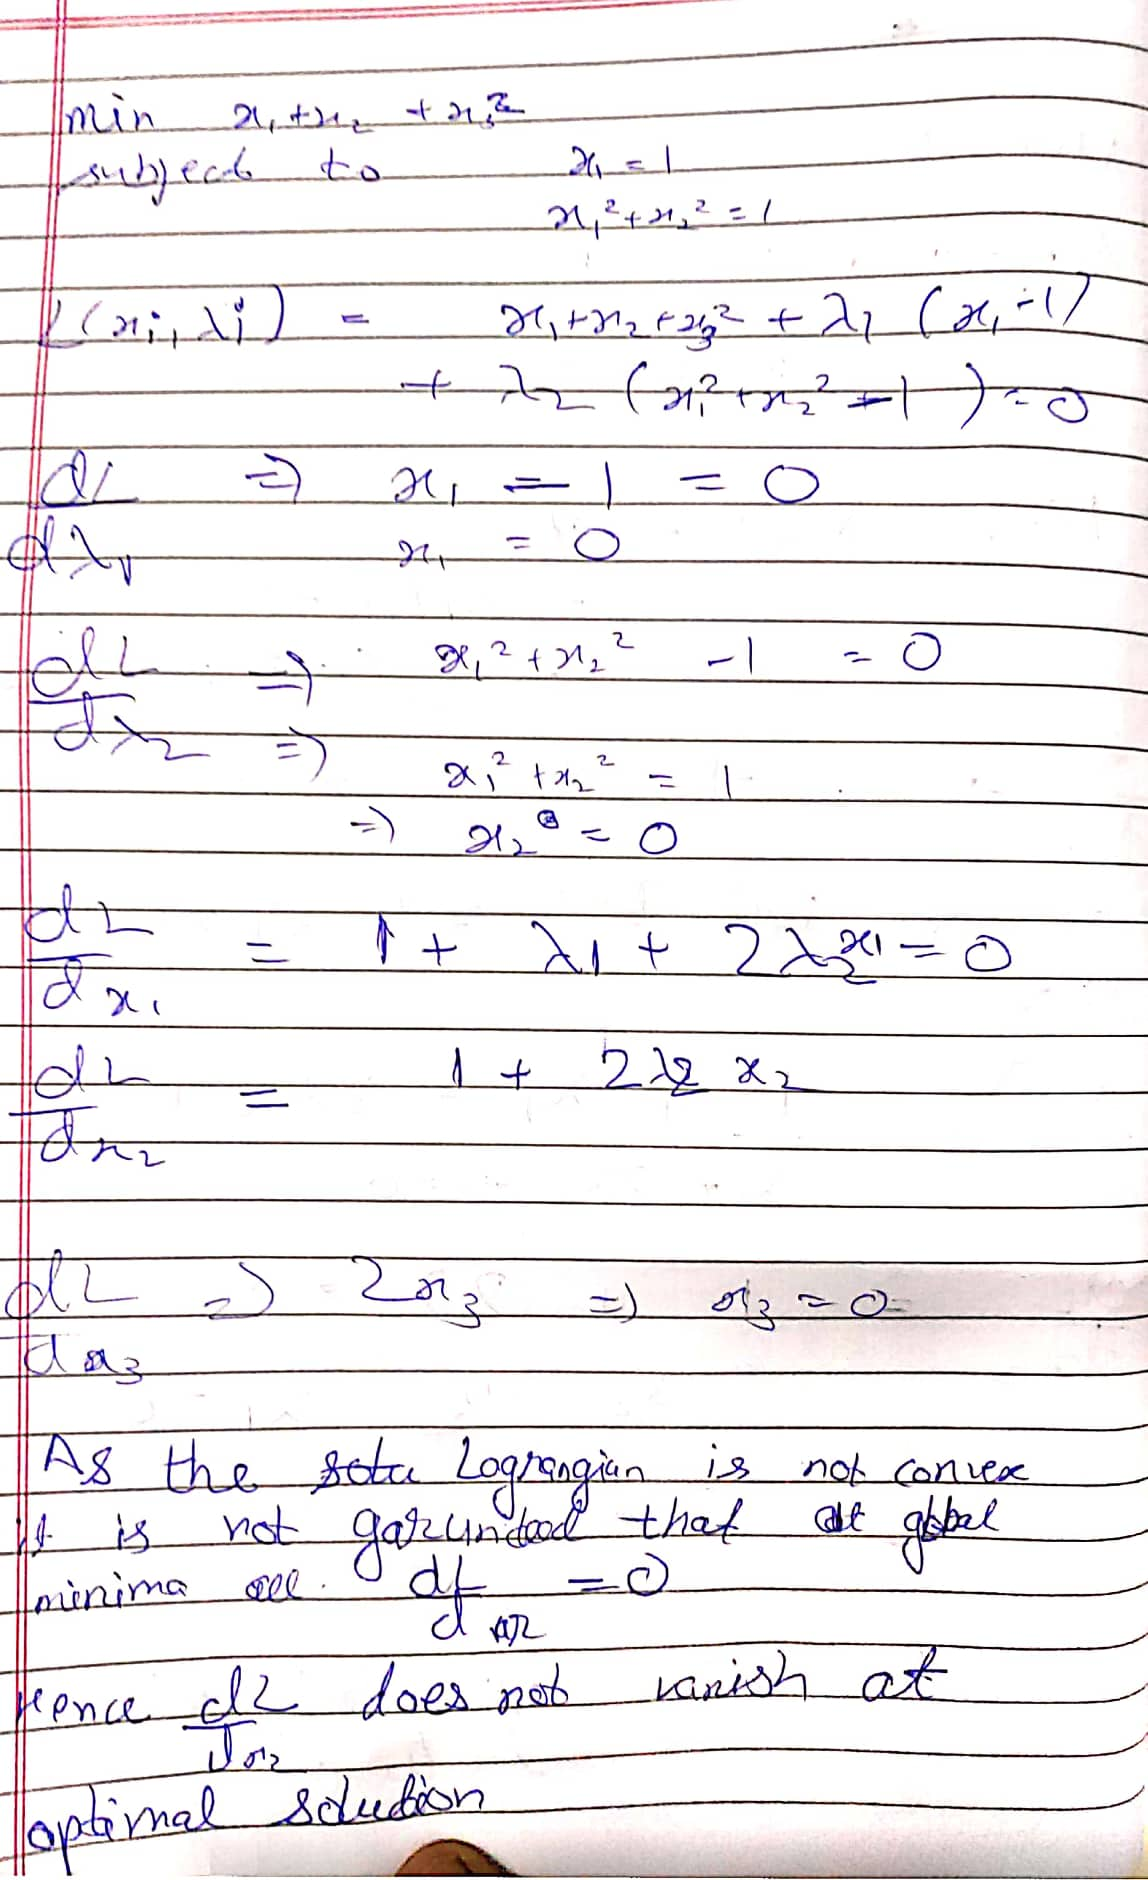 min x₁+x₂ + x₃²
subject to x₁ = 1
x₁²+x₂² = 1
L(xi, λj) = x₁+x₂+x₃² + λ₁ (x₁-1)
+ λ₂ (x₁²+x₂²-1) = 0
dL/dλ₁ => x₁ - 1 = 0
x₁ = 0
dL/dλ₂ => x₁²+x₂² -1 = 0
=> x₁²+x₂² = 1
=> x₂ = 0
dL/dx₁ = 1 + λ₁ + 2λ₂x₁ = 0
dL/dx₂ = 1 + 2λ₂ x₂
dL/dx₃ => 2x₃ => x₃ = 0
As the Lagrangian is not convex
it is not garunteed that at global
minima all dL/dx = 0
Hence dL/dx₂ does not vanish at
optimal solution